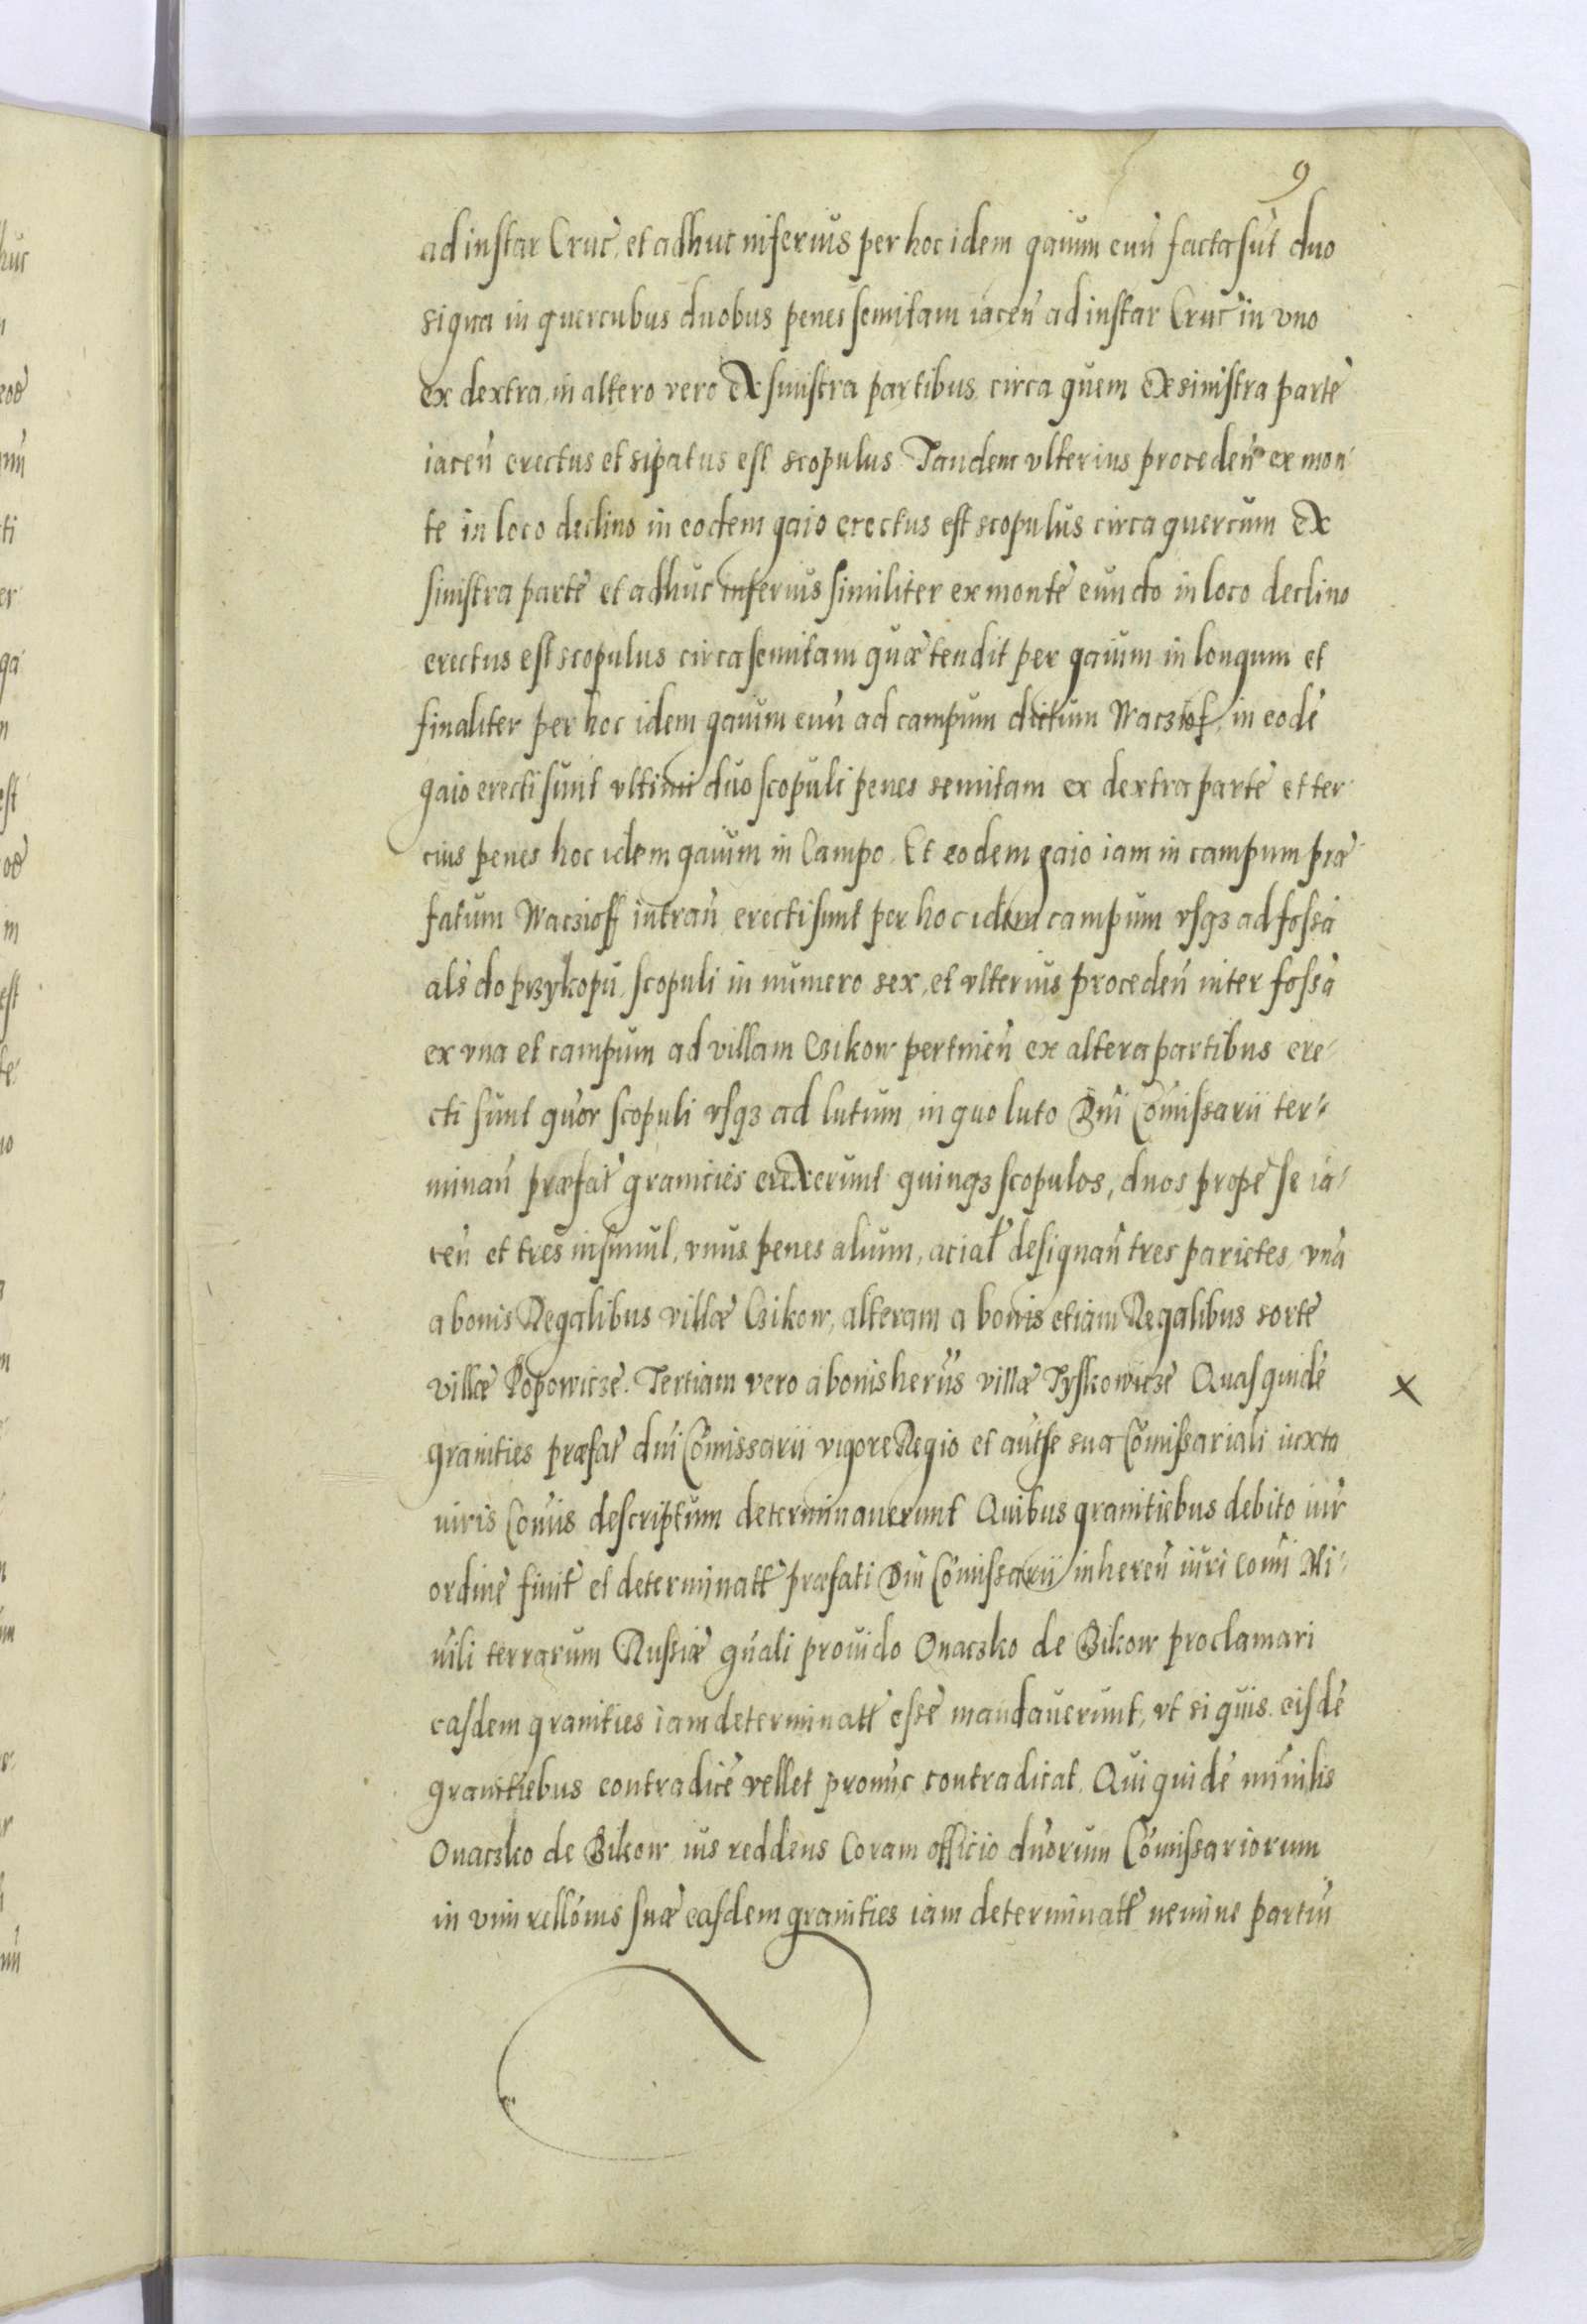 9
ad instar Cruc̄. et adhuc inferius per hoc idem gaium eun̄ facta sūt duo
signa in quercubus duobus penes semitam iacen̄ ad instar Cruc̄ in vno
ex dextra, in altero vero ex sinistra partibus, circa quem ex sinistra parte
iacen̄ erectus et sipatus est scopulus. Tandem vlterius proceden̄ ex mon-
te in loco declino in eodem gaio erectus est scopulus circa quercum ex
sinistra parte et adhuc inferius similiter ex monte eundo in loco declino
erectus est scopulus circa semitam quæ tendit per gaium in longum et
finaliter per hoc idem gaium eun̄ ad campum dictum Wacziof, in eodē
gaio erecti sunt vltimi duo scopuli penes semitam ex dextra parte et ter-
cius penes hoc idem gaium in Campo. Et eodem gaio iam in campum præ-
fatum Waczioff intran̄ erecti sunt per hoc idem campum vsqȝ ad fossā
als do przykopu, scopuli in numero sex, et vlterius proceden̄ inter fossā
ex vna et campum ad villam Czikow pertinen̄ ex altera partibus ere-
cti sunt quōr scopuli vsqȝ ad lutum, in quo luto Dn̄i Com̄issarii ter-
minan̄ præfat̄ granicies erexerunt quinqȝ scopulos, duos prope se ia-
cen̄ et tres insimul, vnus penes alium, acial̄ designan̄ tres parietes, vnā
a bonis Regalibus villæ Czikow, alteram a bonis etiam Regalibus sorte
villæ Popowicze. Tertiam vero a bonis heriis villæ Tyskowicze Quas quidē
x
granities præfat̄ dn̄i Com̄issarii vigore Regio et aut̄te sua Com̄issariali iuxta
iuris Com̄is descriptum determinauerunt Quibus granitiebus debito iur̄
ordine finit̄ et determinatt̄ præfati Dn̄i Com̄issarii inheren̄ iuri com̄i Mi-
nili terrarum Russiæ gn̄ali prouido Onaczko de Bikow proclamari
easdem granities iam determinatt̄ esse mandauerunt, vt si quis eisdē
granitiebus contradicē vellet pronūc contradicat. Qui quidē minilis
Onaczko de Bikow ius reddens Coram officio dn̄orum Com̄issariorum
in vim rellōnis suæ easdem granities iam determinatt̄ nemine partiū